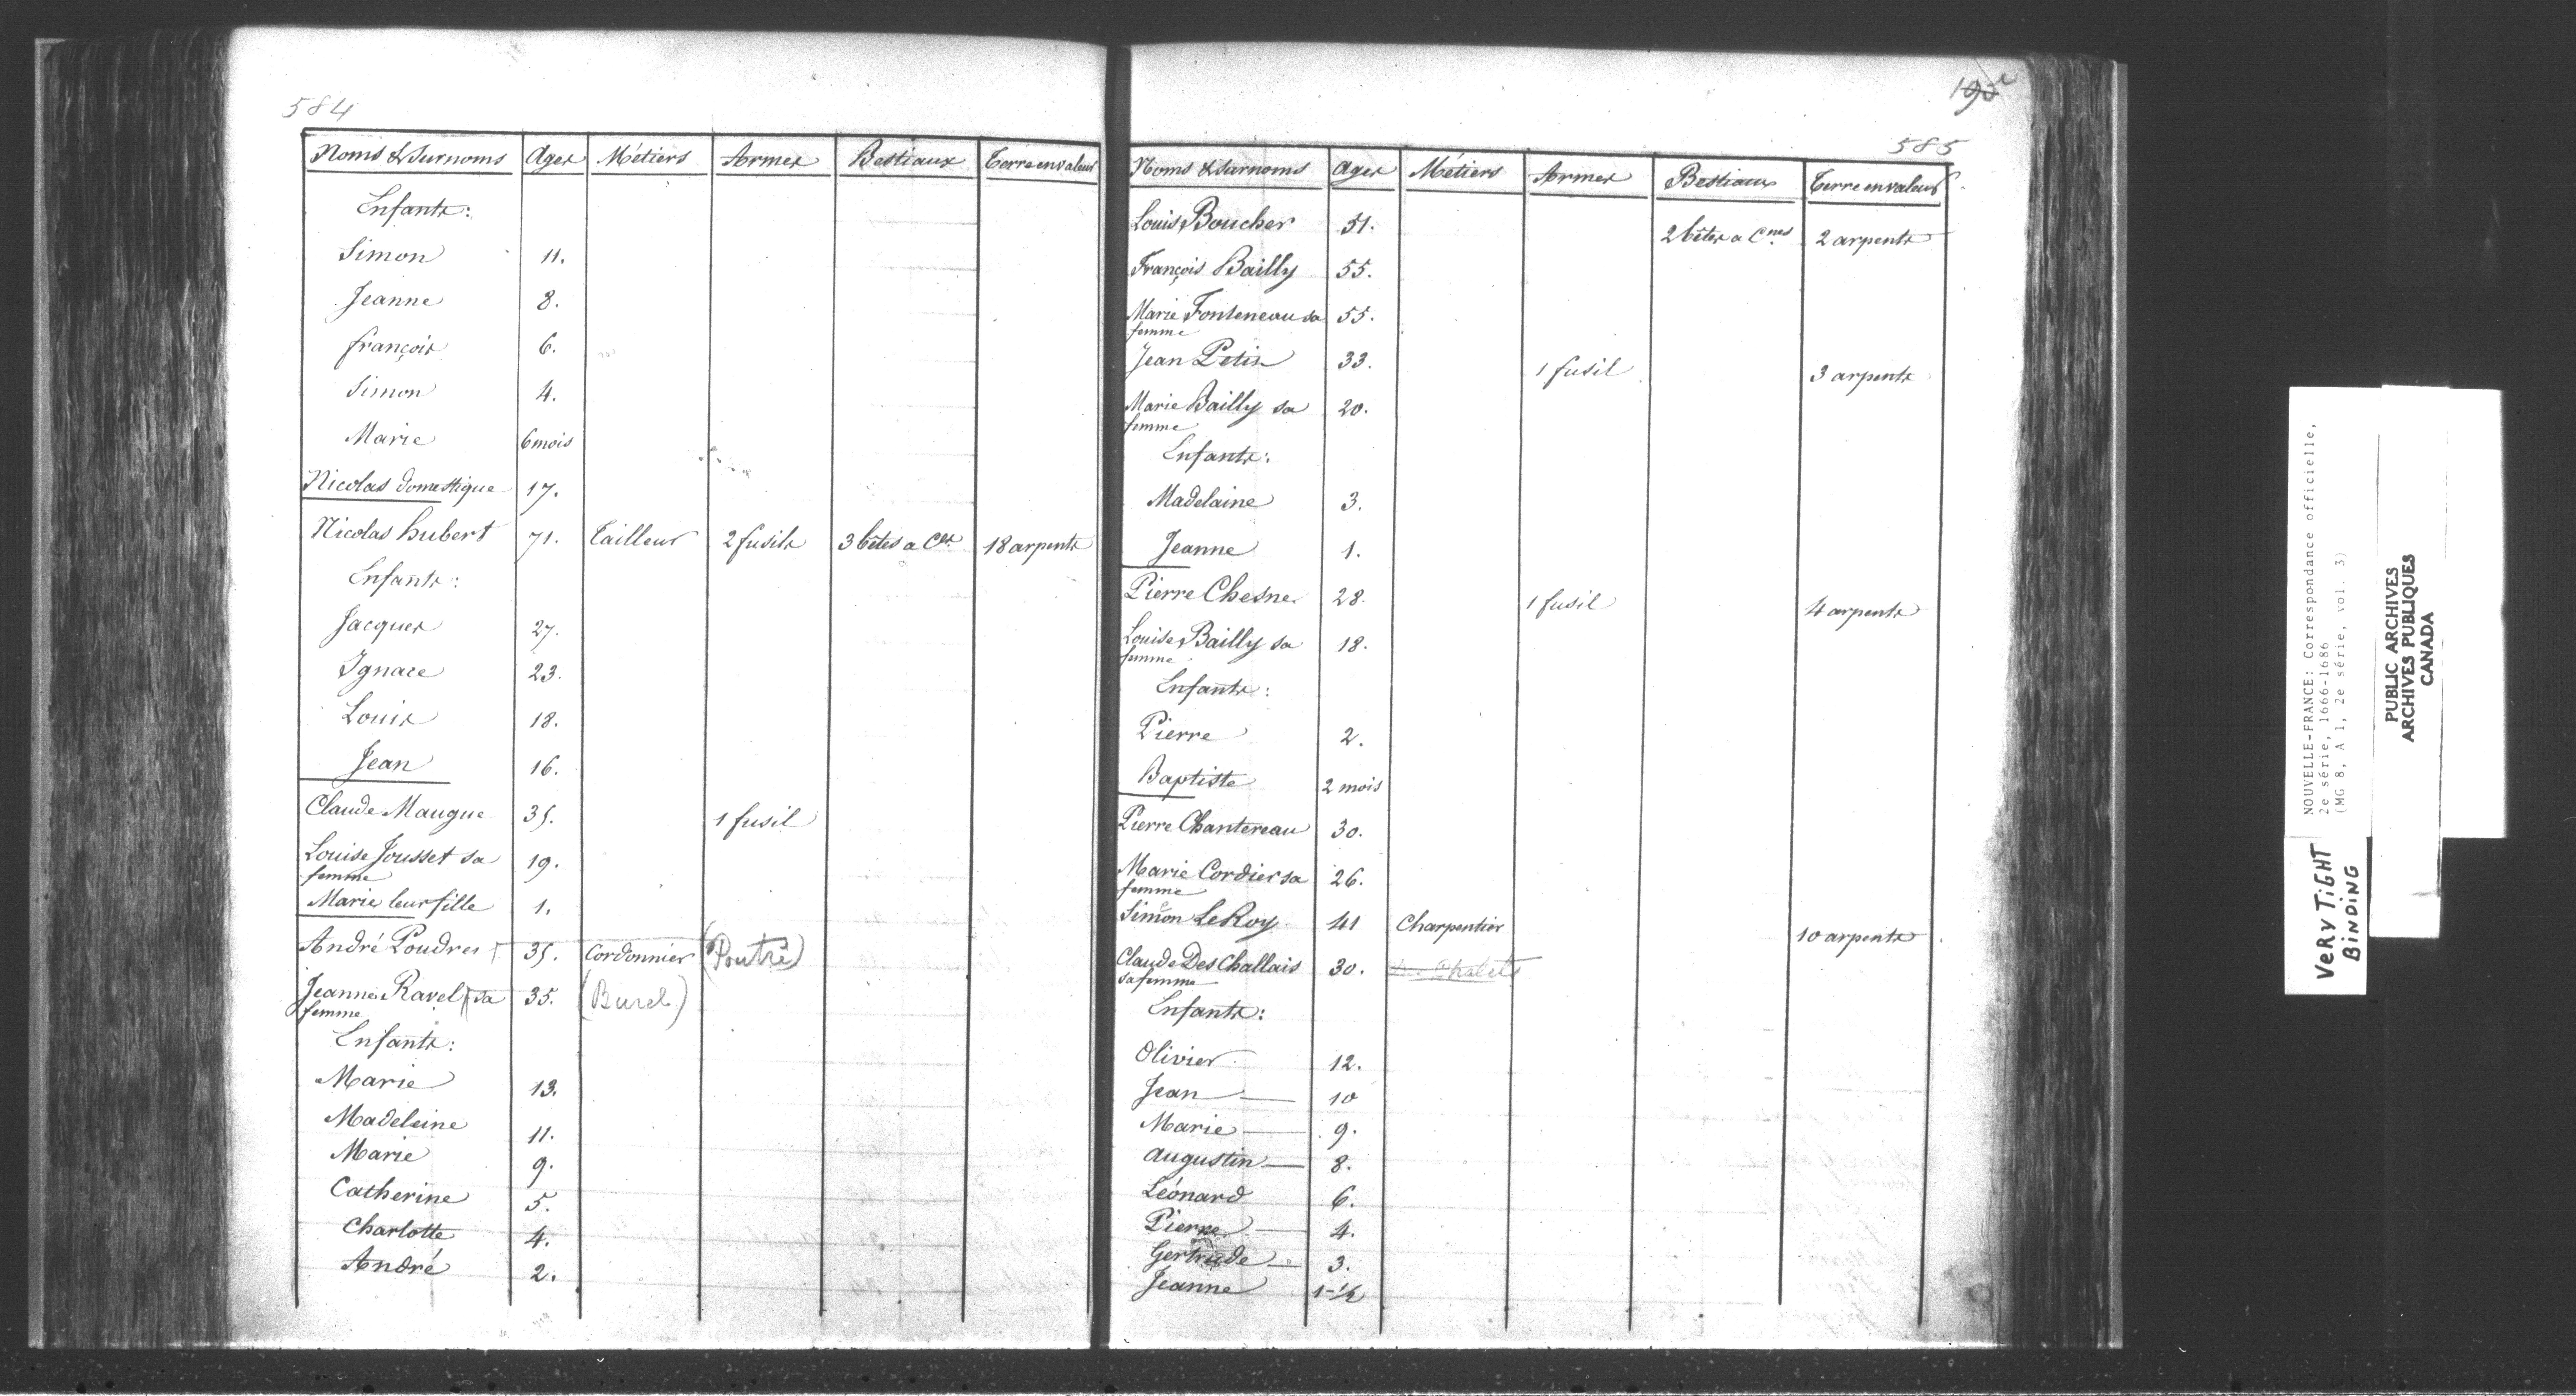 584
Noms & Surnoms Ages Métiers Armes Bestiaux Terre en valeur
Enfants:
Simon 11.
Jeanne 8.
françois 6.
Simon 4.
Marie 6 mois
Nicolas domestique 17.
Nicolas hubert 71. Tailleur 2 fusils 3 bêtes a Ces 18 arpents
Enfants:
Jacques 27.
Ignace 23.
Louis 18.
Jean 16.
Claude Maugue 35. 1 fusil
Louise Jousset sa 19.
femme
Marie leur fille 1.
André Poudres 35. Cordonnier (Poutré)
Jeanne Ravel sa 35. (Burel)
femme
Enfants:
Marie 13.
Madeleine 11.
Marie 9.
Catherine 5.
Charlotte 4.
André 2.
585
Noms & Surnoms Ages Métiers Armes Bestiaux Terre en valeur
Louis Boucher 51. 2 bêtes a Cnes 2 arpents
François Bailly 55.
Marie Fonteneau sa 55.
femme
Jean Petit 33. 1 fusil 3 arpents
Marie Bailly sa 20.
femme
Enfants:
Madelaine 3.
Jeanne 1.
Pierre Chesne 28. 1 fusil 4 arpents
Louise Bailly sa 18.
femme
Enfants:
Pierre 2.
Baptiste 2 mois
Pierre Chantereau 30.
Marie Cordier sa 26.
femme
Simon LeRoy 41 Charpentier 10 arpents
Claude Des Challais 30. Chalets
sa femme
Enfants:
Olivier 12.
Jean — 10
Marie — 9.
Augustin — 8.
Léonard 6.
Pierre — 4.
Gertrude — 3.
Jeanne 1-1/2
NOUVELLE-FRANCE: Correspondance officielle,
2e série, 1666-1686
(MG 8, A 1, 2e série, vol. 3)
VERY TiGHT
BiNDiNG
PUBLIC ARCHIVES
ARCHIVES PUBLIQUES
CANADA